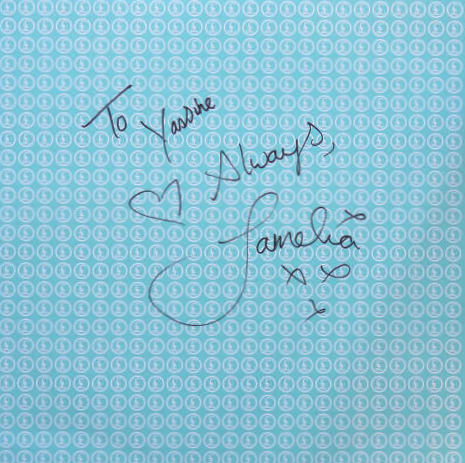 To Yassine
♡ Always,
Jamelia x
x x
x